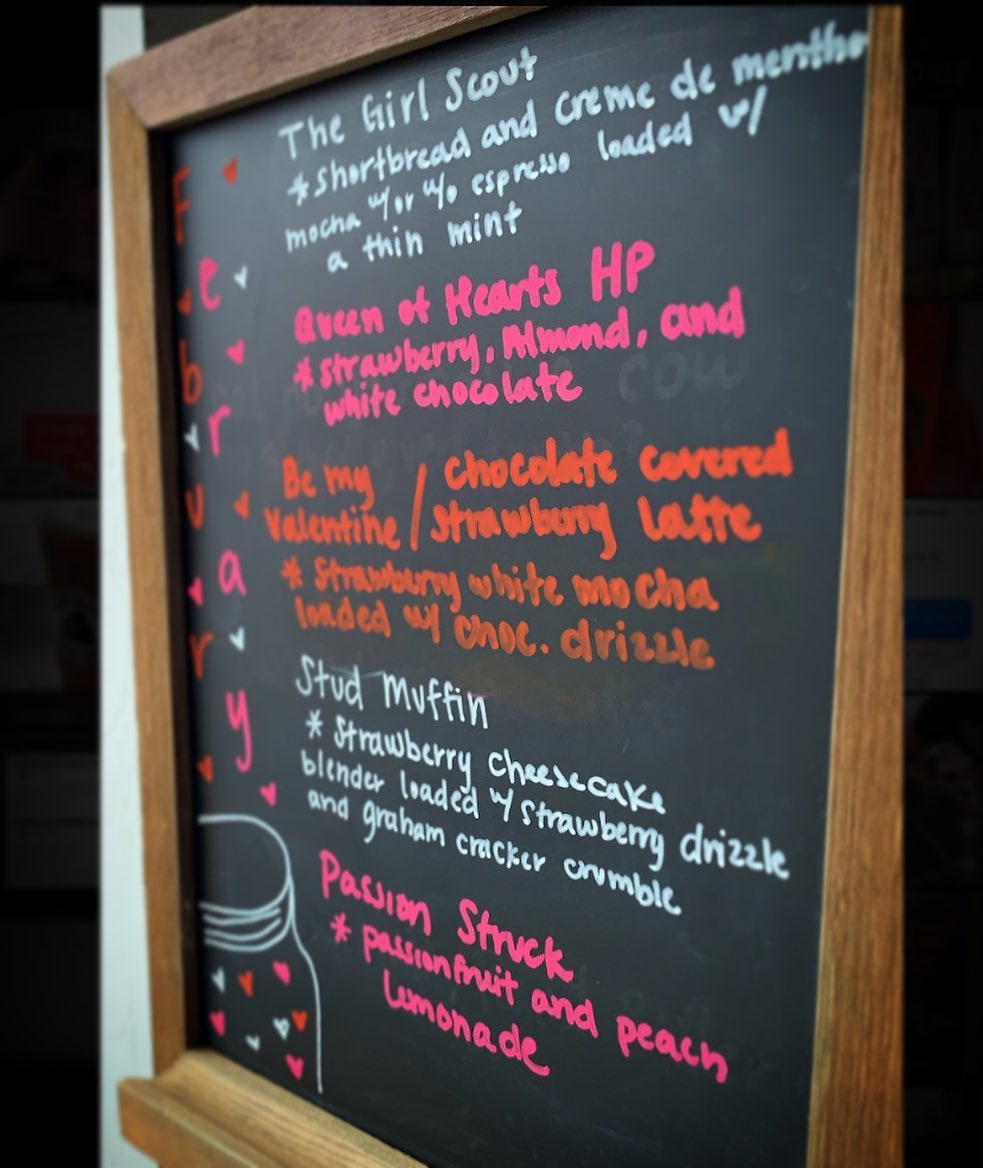 February
The Girl Scout
* shortbread and creme de menthe
mocha w/or w/o espresso loaded w/
a thin mint
Queen of Hearts HP
* strawberry, Almond, and
white chocolate
Be my Valentine / Chocolate covered
strawberry latte
* Strawberry white mocha
loaded w/ choc. drizzle
Stud Muffin
* Strawberry cheesecake
blender loaded w/ strawberry drizzle
and graham cracker crumble
Passion Struck
* passionfruit and peach
Lemonade